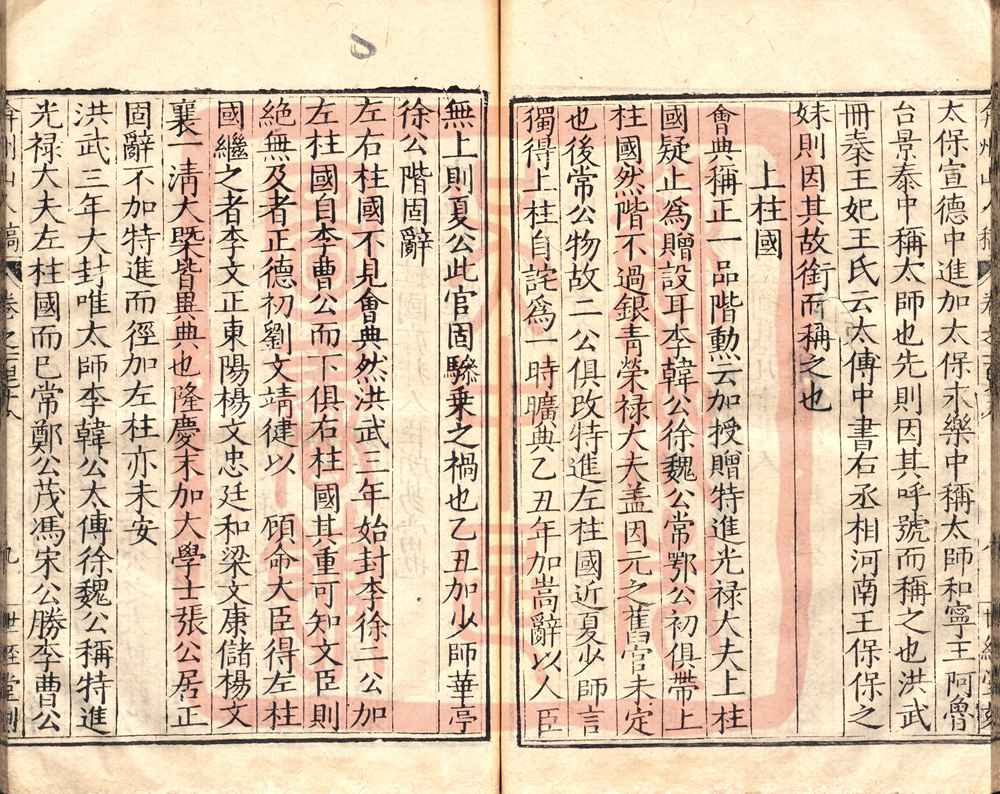 太保宣德中進加太保永樂中稱太師和寧王阿魯
台景泰中稱太師也先則因其呼號而稱之也洪武
冊秦王妃王氏云太傅中書右丞相河南王保保之
妹則因其故銜而稱之也
上柱國
會典稱正一品階勲云加授贈特進光禄大夫上柱
國疑止爲贈設耳李韓公徐魏公常鄂公初俱帶上
柱國然階不過銀青榮禄大夫盖因元之舊官未定
也後常公物故二公俱改特進左柱國近夏少師言
獨得上柱自詫爲一時曠典乙丑年加嵩辭以人臣
無上則夏公此官固驂乗之禍也乙丑加少師華亭
徐公階固辭
左右柱國不見會典然洪武三年始封李徐二公加
左柱國自李曹公而下俱右柱國其重可知文臣則
絶無及者正德初劉文靖徤以 顧命大臣得左柱
國繼之者李文正東陽楊文忠廷和梁文康儲楊文
襄一清大槩皆異典也隆慶末加大學士張公居正
固辭不加特進而徑加左柱亦未安
洪武三年大封唯太師李韓公太傅徐魏公稱特進
光禄大夫左柱國而已常鄭公茂馮宋公勝李曹公
弇州山人稿 卷之一百
九
世經堂刻